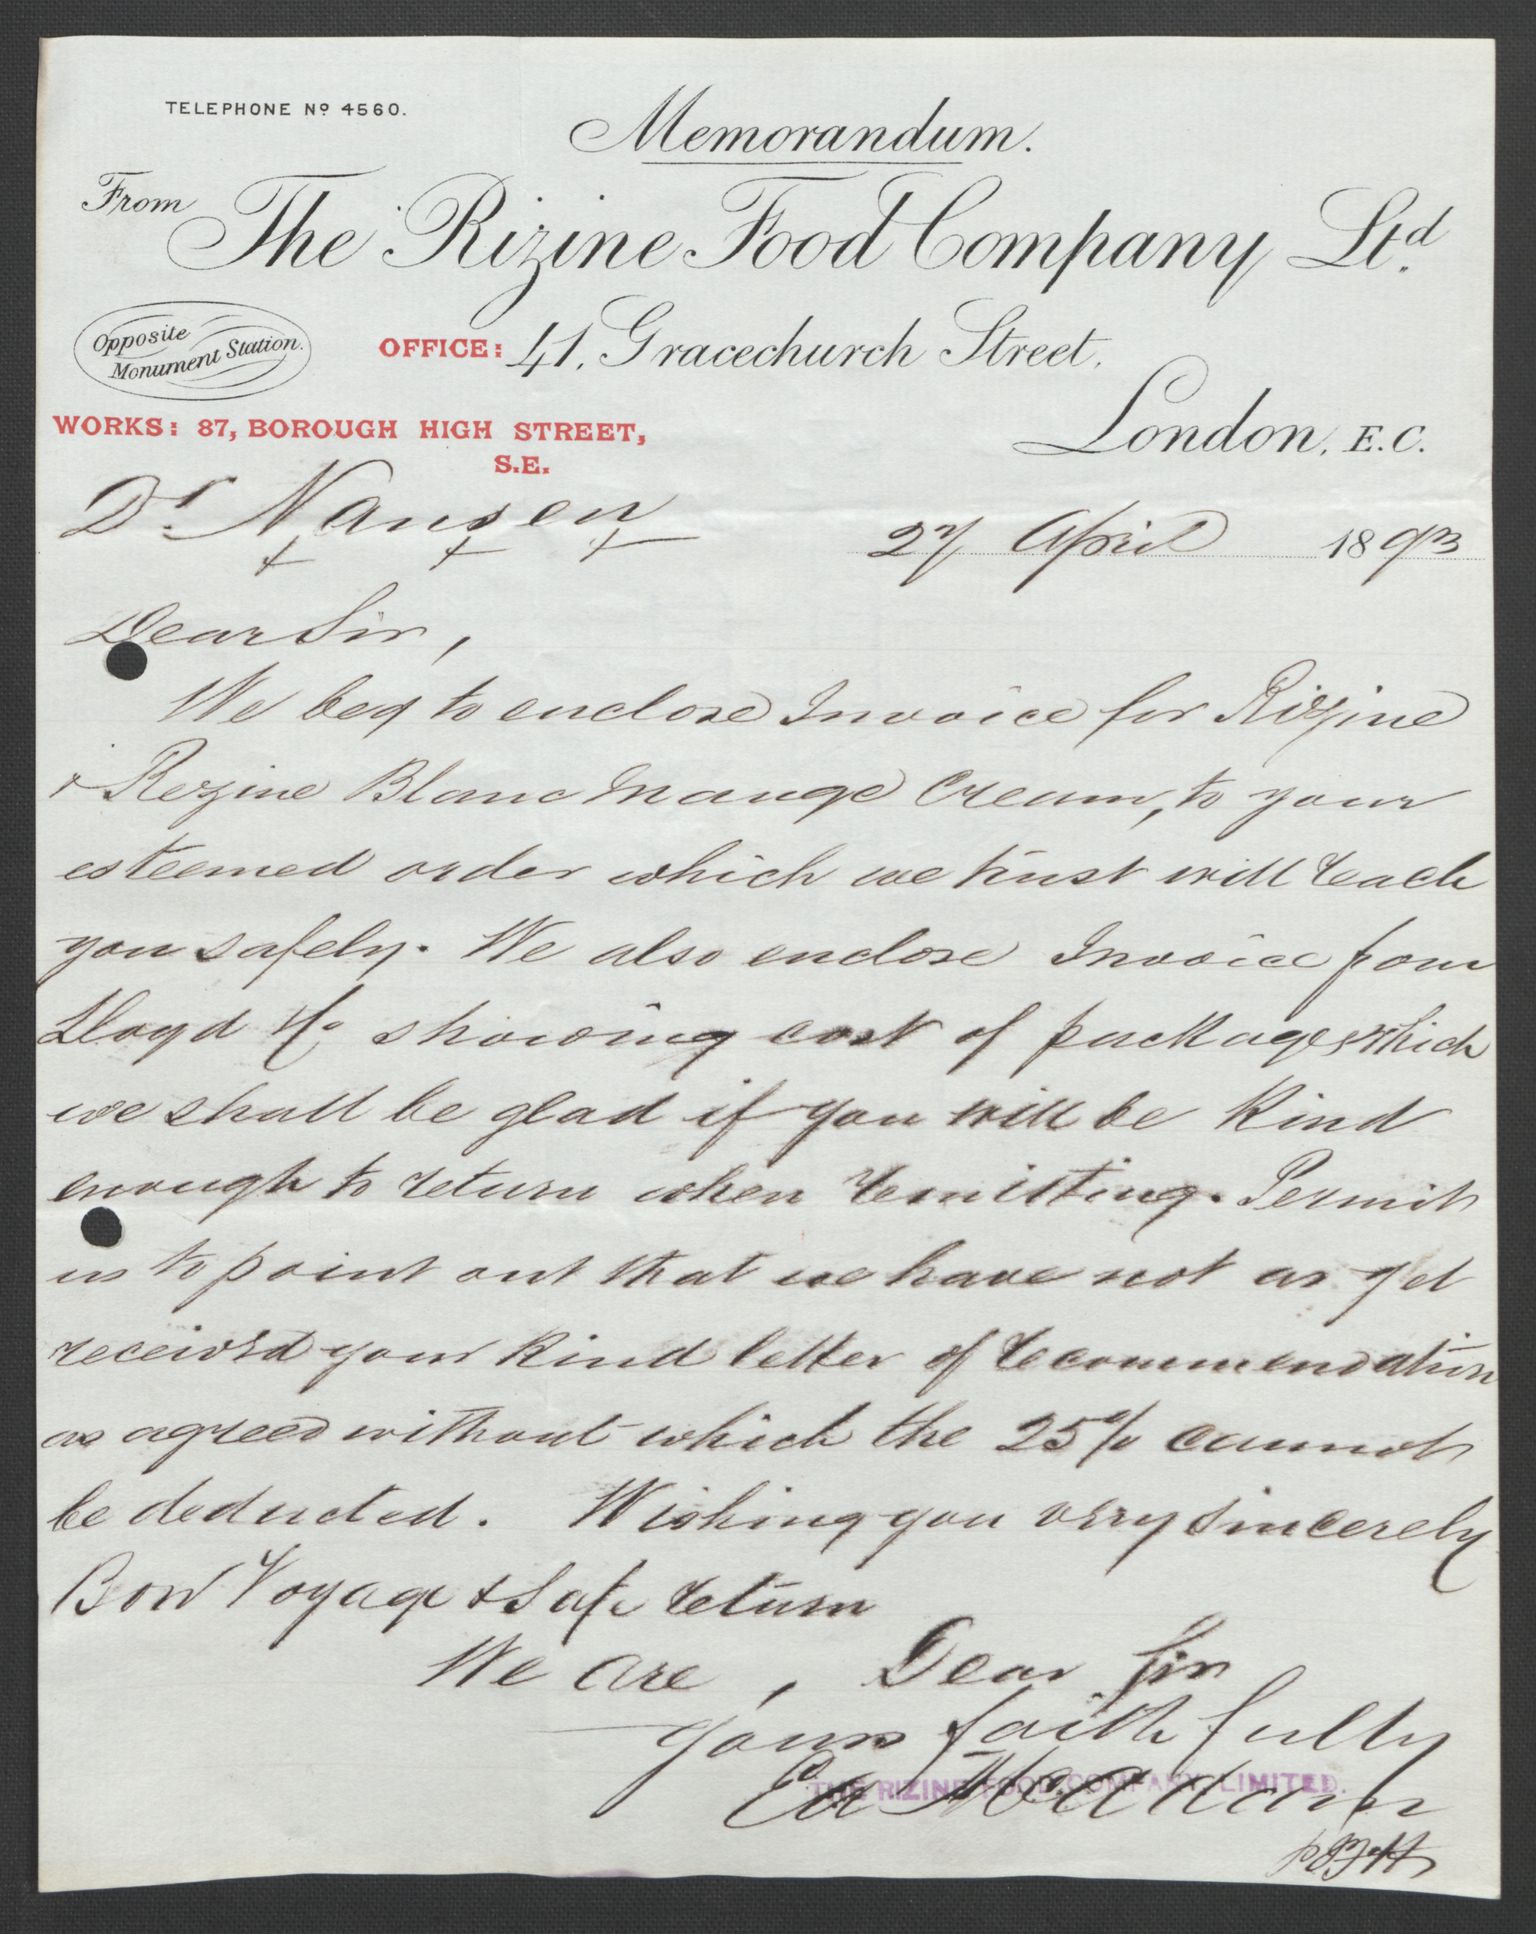 TELEPHONE No 4560.
Memorandum.
From The Rizine Food Company Ltd.
Opposite
Monument Station.
OFFICE: 41, Gracechurch Street,
London, E.C.
WORKS: 87, BOROUGH HIGH STREET,
S.E.
Dr. Nansen
27 April 1893
Dear Sir,
We beg to enclose Invoice for Rizine
& Rizine Blanc Mange Cream, to your
esteemed order which we trust will reach
you safely. We also enclose Invoice from
Lloyd & Co showing cost of packages which
we shall be glad if you will be kind
enough to return when remitting. Permit
us to point out that we have not as yet
received your kind letter of recommendation
as agreed without which the 25% cannot
be deducted. Wishing you very sincerely
Bon Voyage & safe return
We are, Dear Sir
yours faithfully
THE RIZINE FOOD COMPANY, LIMITED.